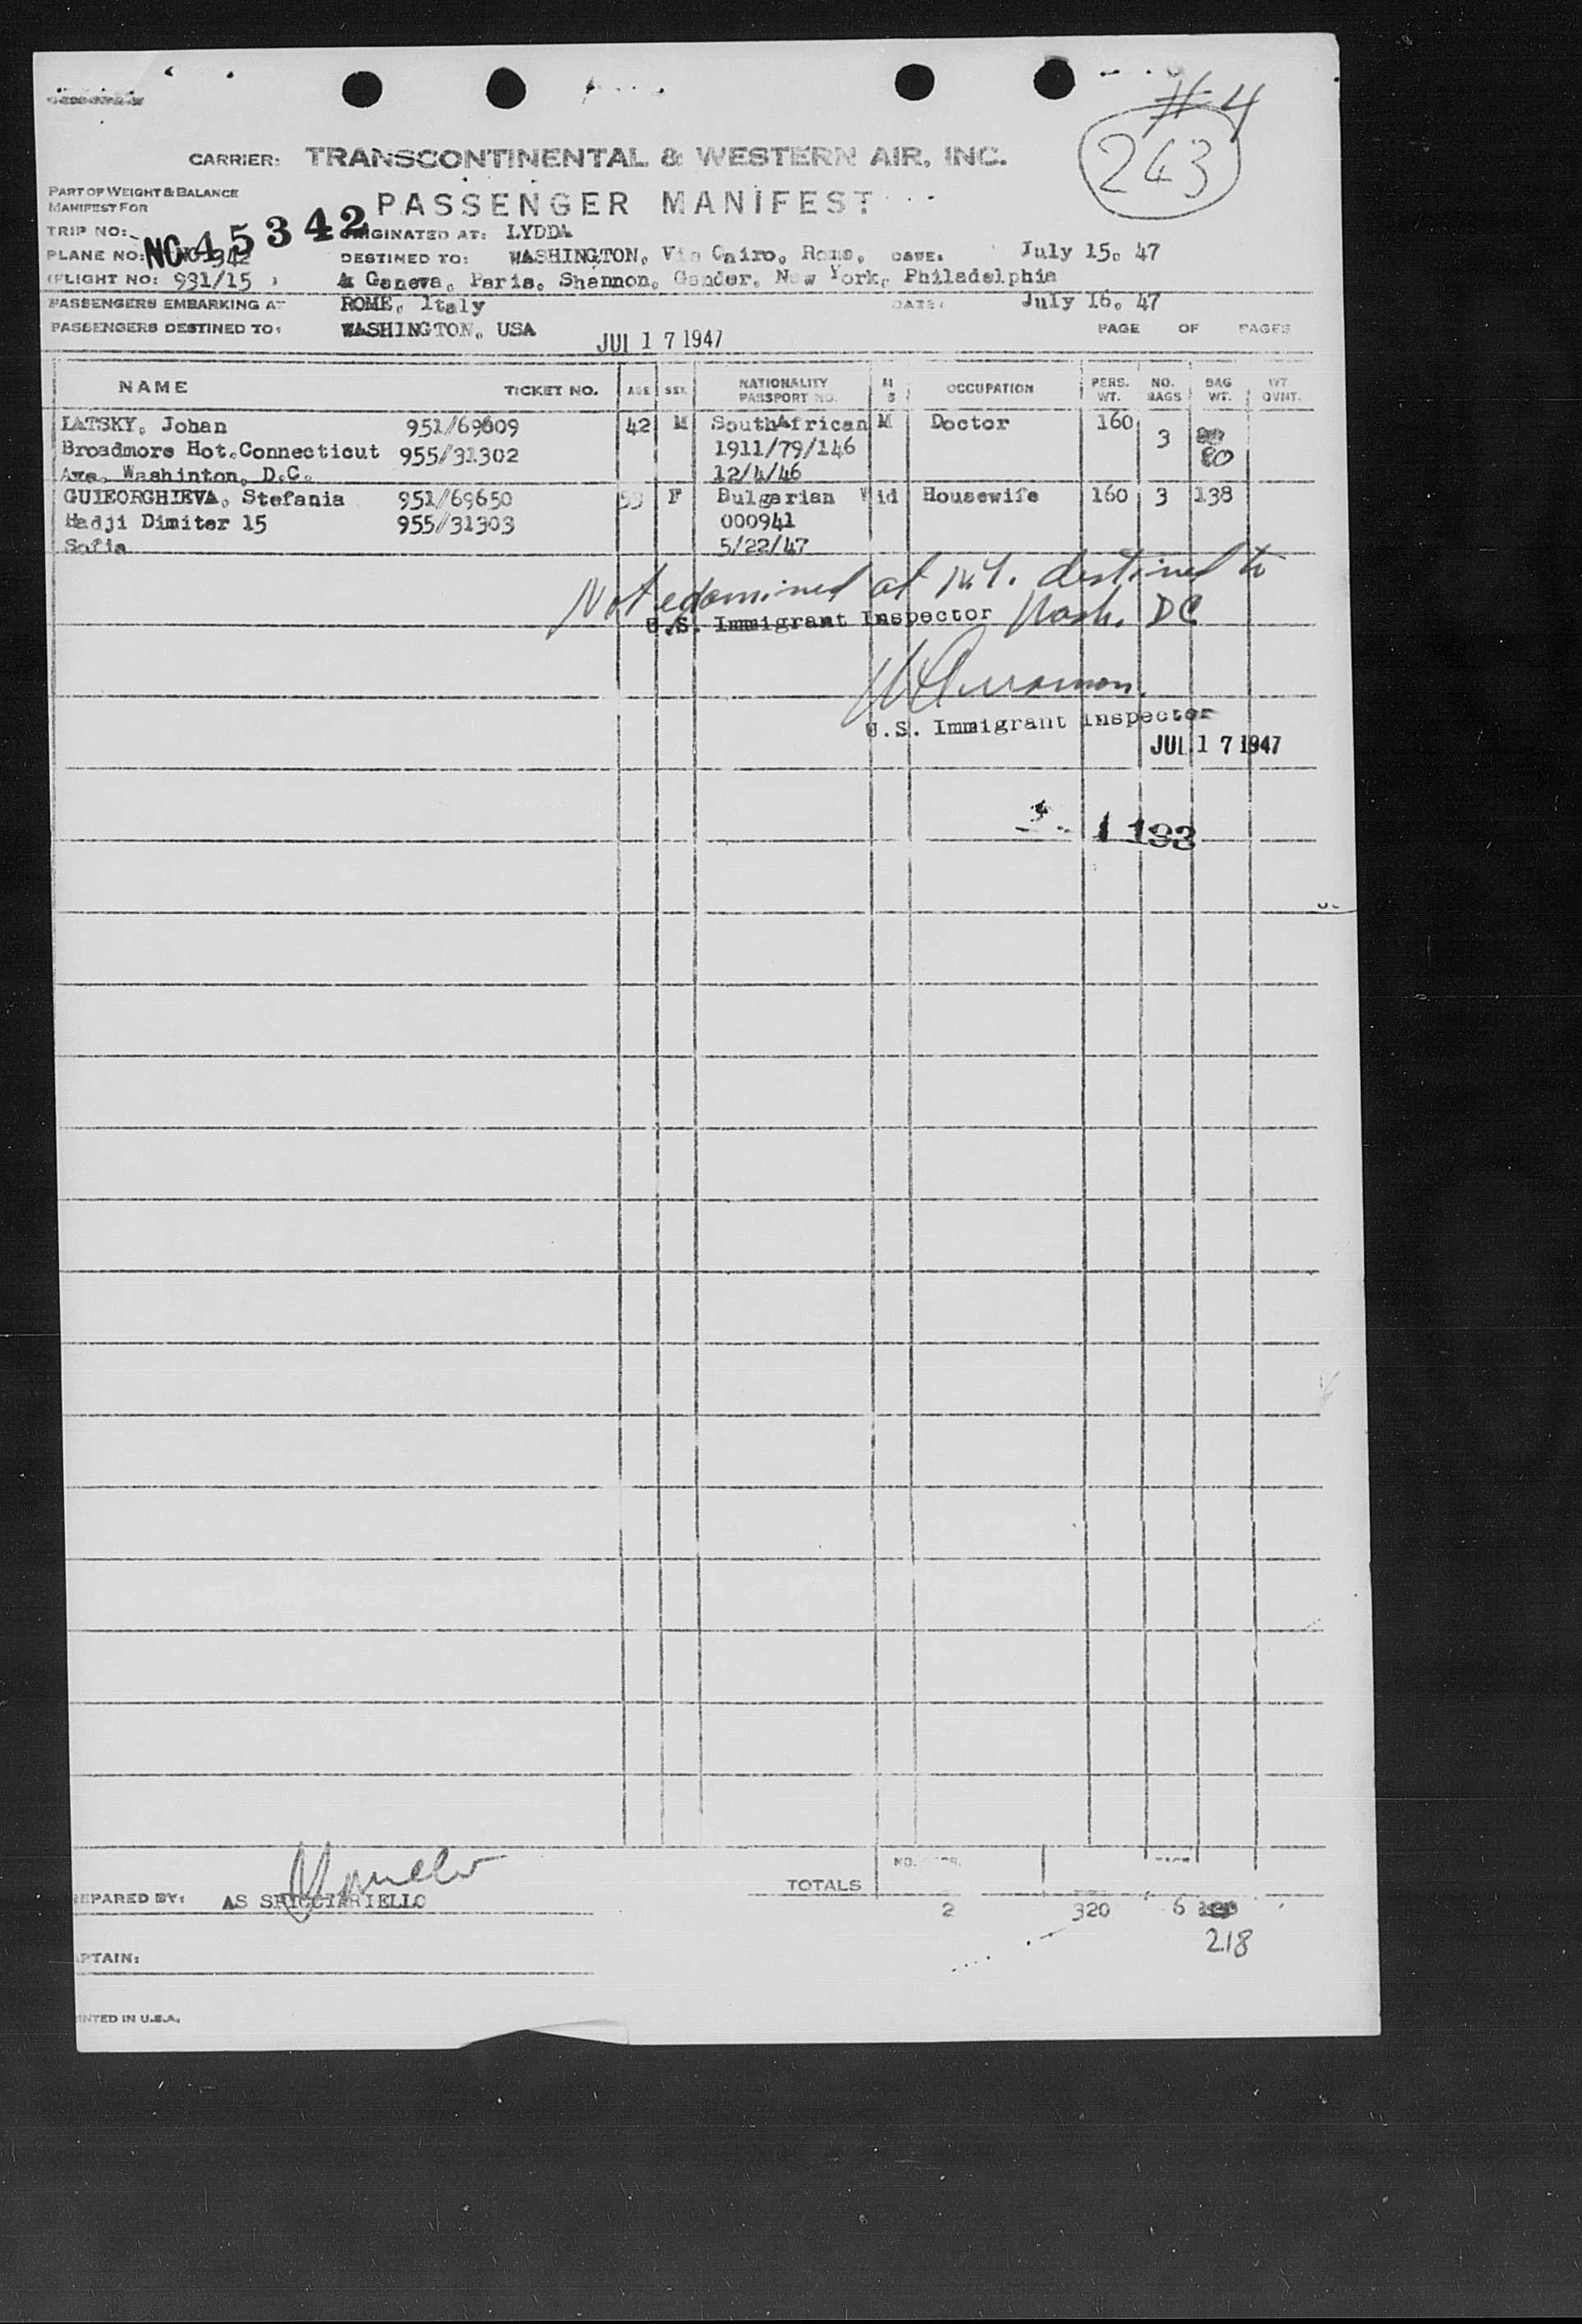 #4
243
CARRIER: TRANSCONTINENTAL & WESTERN AIR, INC.
PART OF WEIGHT & BALANCE
MANIFEST FOR
PASSENGER MANIFEST
TRIP NO:
NC 45342
ORIGINATED AT: LYDDA
PLANE NO:
DESTINED TO: WASHINGTON, Via Cairo, Rome, DATE: July 15. 47
(FLIGHT NO: 931/15 ) & Geneva, Paris, Shannon, Gander, New York, Philadelphia
PASSENGERS EMBARKING AT ROME, Italy DATE: July 16. 47
PASSENGERS DESTINED TO: WASHINGTON, USA PAGE OF PAGES
JUL 17 1947
NAME TICKET NO. AGE SEX NATIONALITY PASSPORT NO. M S OCCUPATION PERS. WT. NO. BAGS BAG WT. WT. QVNT.
LATSKY, Johan 951/69609 42 M SouthAfrican M Doctor 160 3
Broadmore Hot.Connecticut 955/31302 1911/79/146 80
Ave, Washinton, D.C. 12/4/46
GUIEORGHIEVA, Stefania 951/69650 53 F Bulgarian Wid Housewife 160 3 138
Hadji Dimiter 15 955/31303 000941
Sofia 5/22/47
Not examined at N.Y. destined to
U.S. Immigrant Inspector Wash. DC
U.S. Immigrant Inspector
JUL 17 1947
1 193
TOTALS
PREPARED BY: AS SPICCIARIELLO 2 320 6
218
CAPTAIN:
PRINTED IN U.S.A.